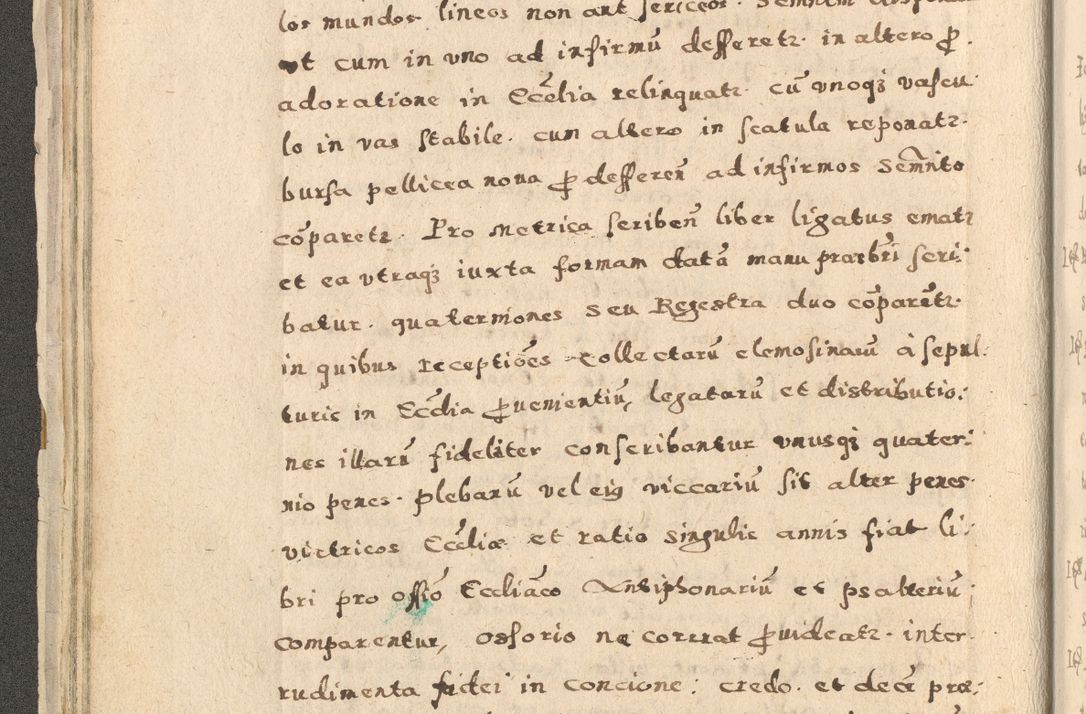 los mundos lineos non aut sericeos.
ut cum in uno ad infirmũ defferetr. in altero ꝑ
adoratione in Eccĩlia relinquatr. cũ unoqȝ vascu
lo in vas stabile. cum altero in scatula reponatr.
bursa pellicea nona ꝑ defferen̄ ad infirmos Semñito
cõparetr. Pro Metrica scriben̄ liber ligatus ematr
et ea utraqȝ iuxta formam datã manu praesbr̃i scri:
batur. quaterniones seu Regestra duo cõparẽtr.
in quibus receptiões collectarũ elemosinarũ à sepul:
turis in Eccl̃ia ꝓuenientiũ, legatarũ et distributio:
nes illarũ fideliter conscribantur unusqȝ quater:
nio penes. plebanũ vel eiꝰ viccariũ sit alter penes
victricos Eccl̃iæ et ratio singulis annis fiat li:
bri pro offiõ Eccl̃iãco Antiphonariũ et psalteriũ
comparentur, Ossorio ne corruat ꝓuideatr. inter
rudimenta fidei in concione: credo. et decẽ præ: